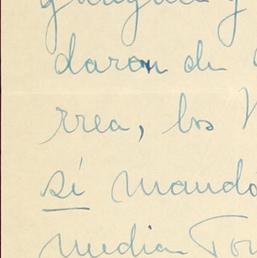 daron de
rrea, los
sí mandó
median Tor